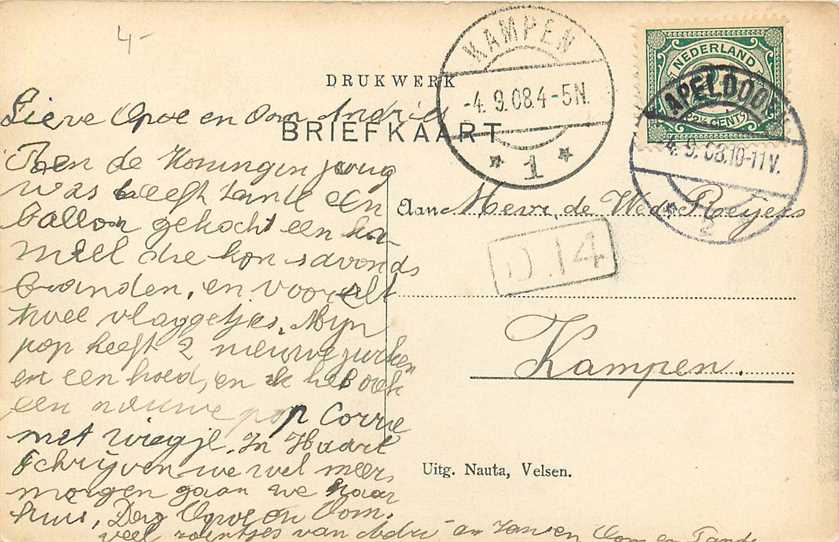 4-
KAMPEN
4.9.08.4-5N.
* 1 *
NEDERLAND
2½ CENT
APELDOORN
4.9.08.10-11V.
2
DRUKWERK
BRIEFKAART
Lieve Opoe en Oom André
Toen de Koningin jarig
was heeft tante een
ballon gekocht een ka-
meel die kon s'avonds
branden, en voor elk
twee vlaggetjes. Mijn
pop heeft 2 nieuwe jurken
en een hoed, en ik heb ook
een nieuwe pop Corrie
met wiegje. In Haarl
schrijven we wel meer,
morgen gaan we naar
huis, Dag Opoe en Oom.
veel zoentjes van en Oom en Tante
Aan Mevr. de Wed. Reijers
D.14
Kampen.
Uitg. Nauta, Velsen.